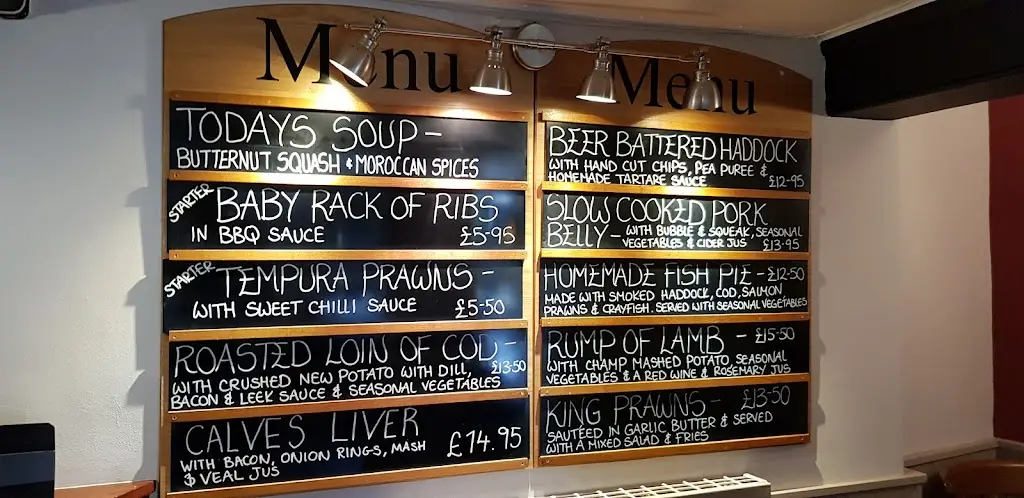 Menu
TODAYS SOUP -
BUTTERNUT SQUASH & MOROCCAN SPICES
STARTER
BABY RACK OF RIBS
IN BBQ SAUCE £5-95
STARTER
TEMPURA PRAWNS -
WITH SWEET CHILLI SAUCE £5-50
ROASTED LOIN OF COD -
WITH CRUSHED NEW POTATO WITH DILL, £13-50
BACON & LEEK SAUCE & SEASONAL VEGETABLES
CALVES LIVER
WITH BACON, ONION RINGS, MASH £14.95
& VEAL JUS
Menu
BEER BATTERED HADDOCK
WITH HAND CUT CHIPS, PEA PUREE &
HOMEMADE TARTARE SAUCE £12-95
SLOW COOKED PORK
BELLY - WITH BUBBLE & SQUEAK, SEASONAL
VEGETABLES & CIDER JUS £13-95
HOMEMADE FISH PIE - £12-50
MADE WITH SMOKED HADDOCK, COD, SALMON
PRAWNS & CRAYFISH. SERVED WITH SEASONAL VEGETABLES
RUMP OF LAMB - £15-50
WITH CHAMP MASHED POTATO, SEASONAL
VEGETABLES & A RED WINE & ROSEMARY JUS
KING PRAWNS - £13-50
SAUTÉED IN GARLIC BUTTER & SERVED
WITH A MIXED SALAD & FRIES